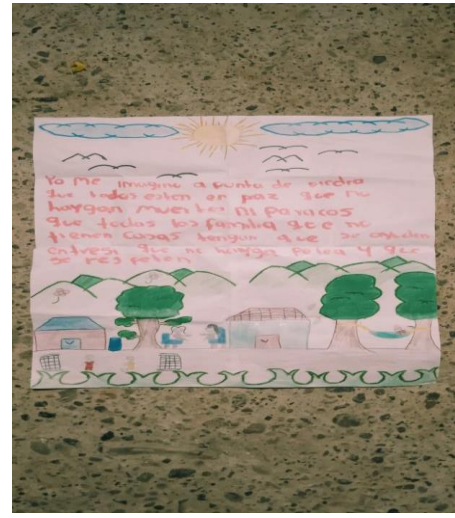 Yo Me imagino a punta de piedra
que todos esten en paz que no
haygan muertos ni paracos
que todas las familia que no
tienen casas tengan que se ayuden
entresi que no hayga pelea y que
se respeten